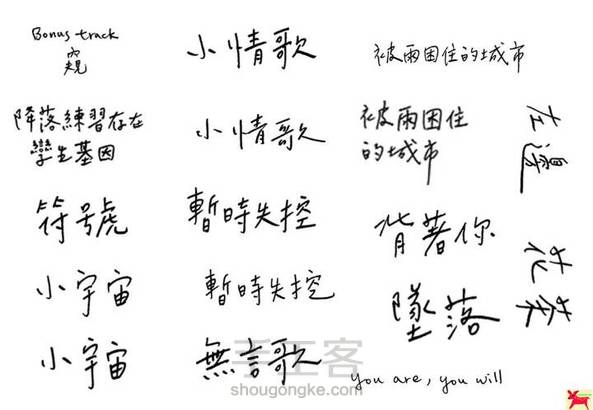 Bonus track
內
規
降落練習存在
孿生基因
符號
小宇宙
小宇宙
小情歌
小情歌
暫時失控
暫時失控
無言歌
被雨困住的城市
被雨困住
的城市
背著你
墜落
you are, you will
左邊
花
手工客
shougongke.com